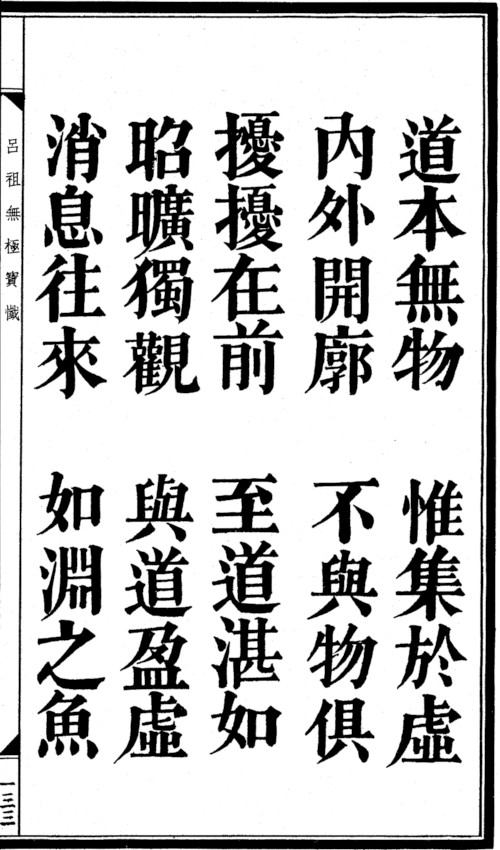 道本無物　惟集於虛
內外開廓　不與物俱
擾擾在前　至道湛如
昭曠獨觀　與道盈虛
消息往來　如淵之魚
呂祖無極寶懺
一三三